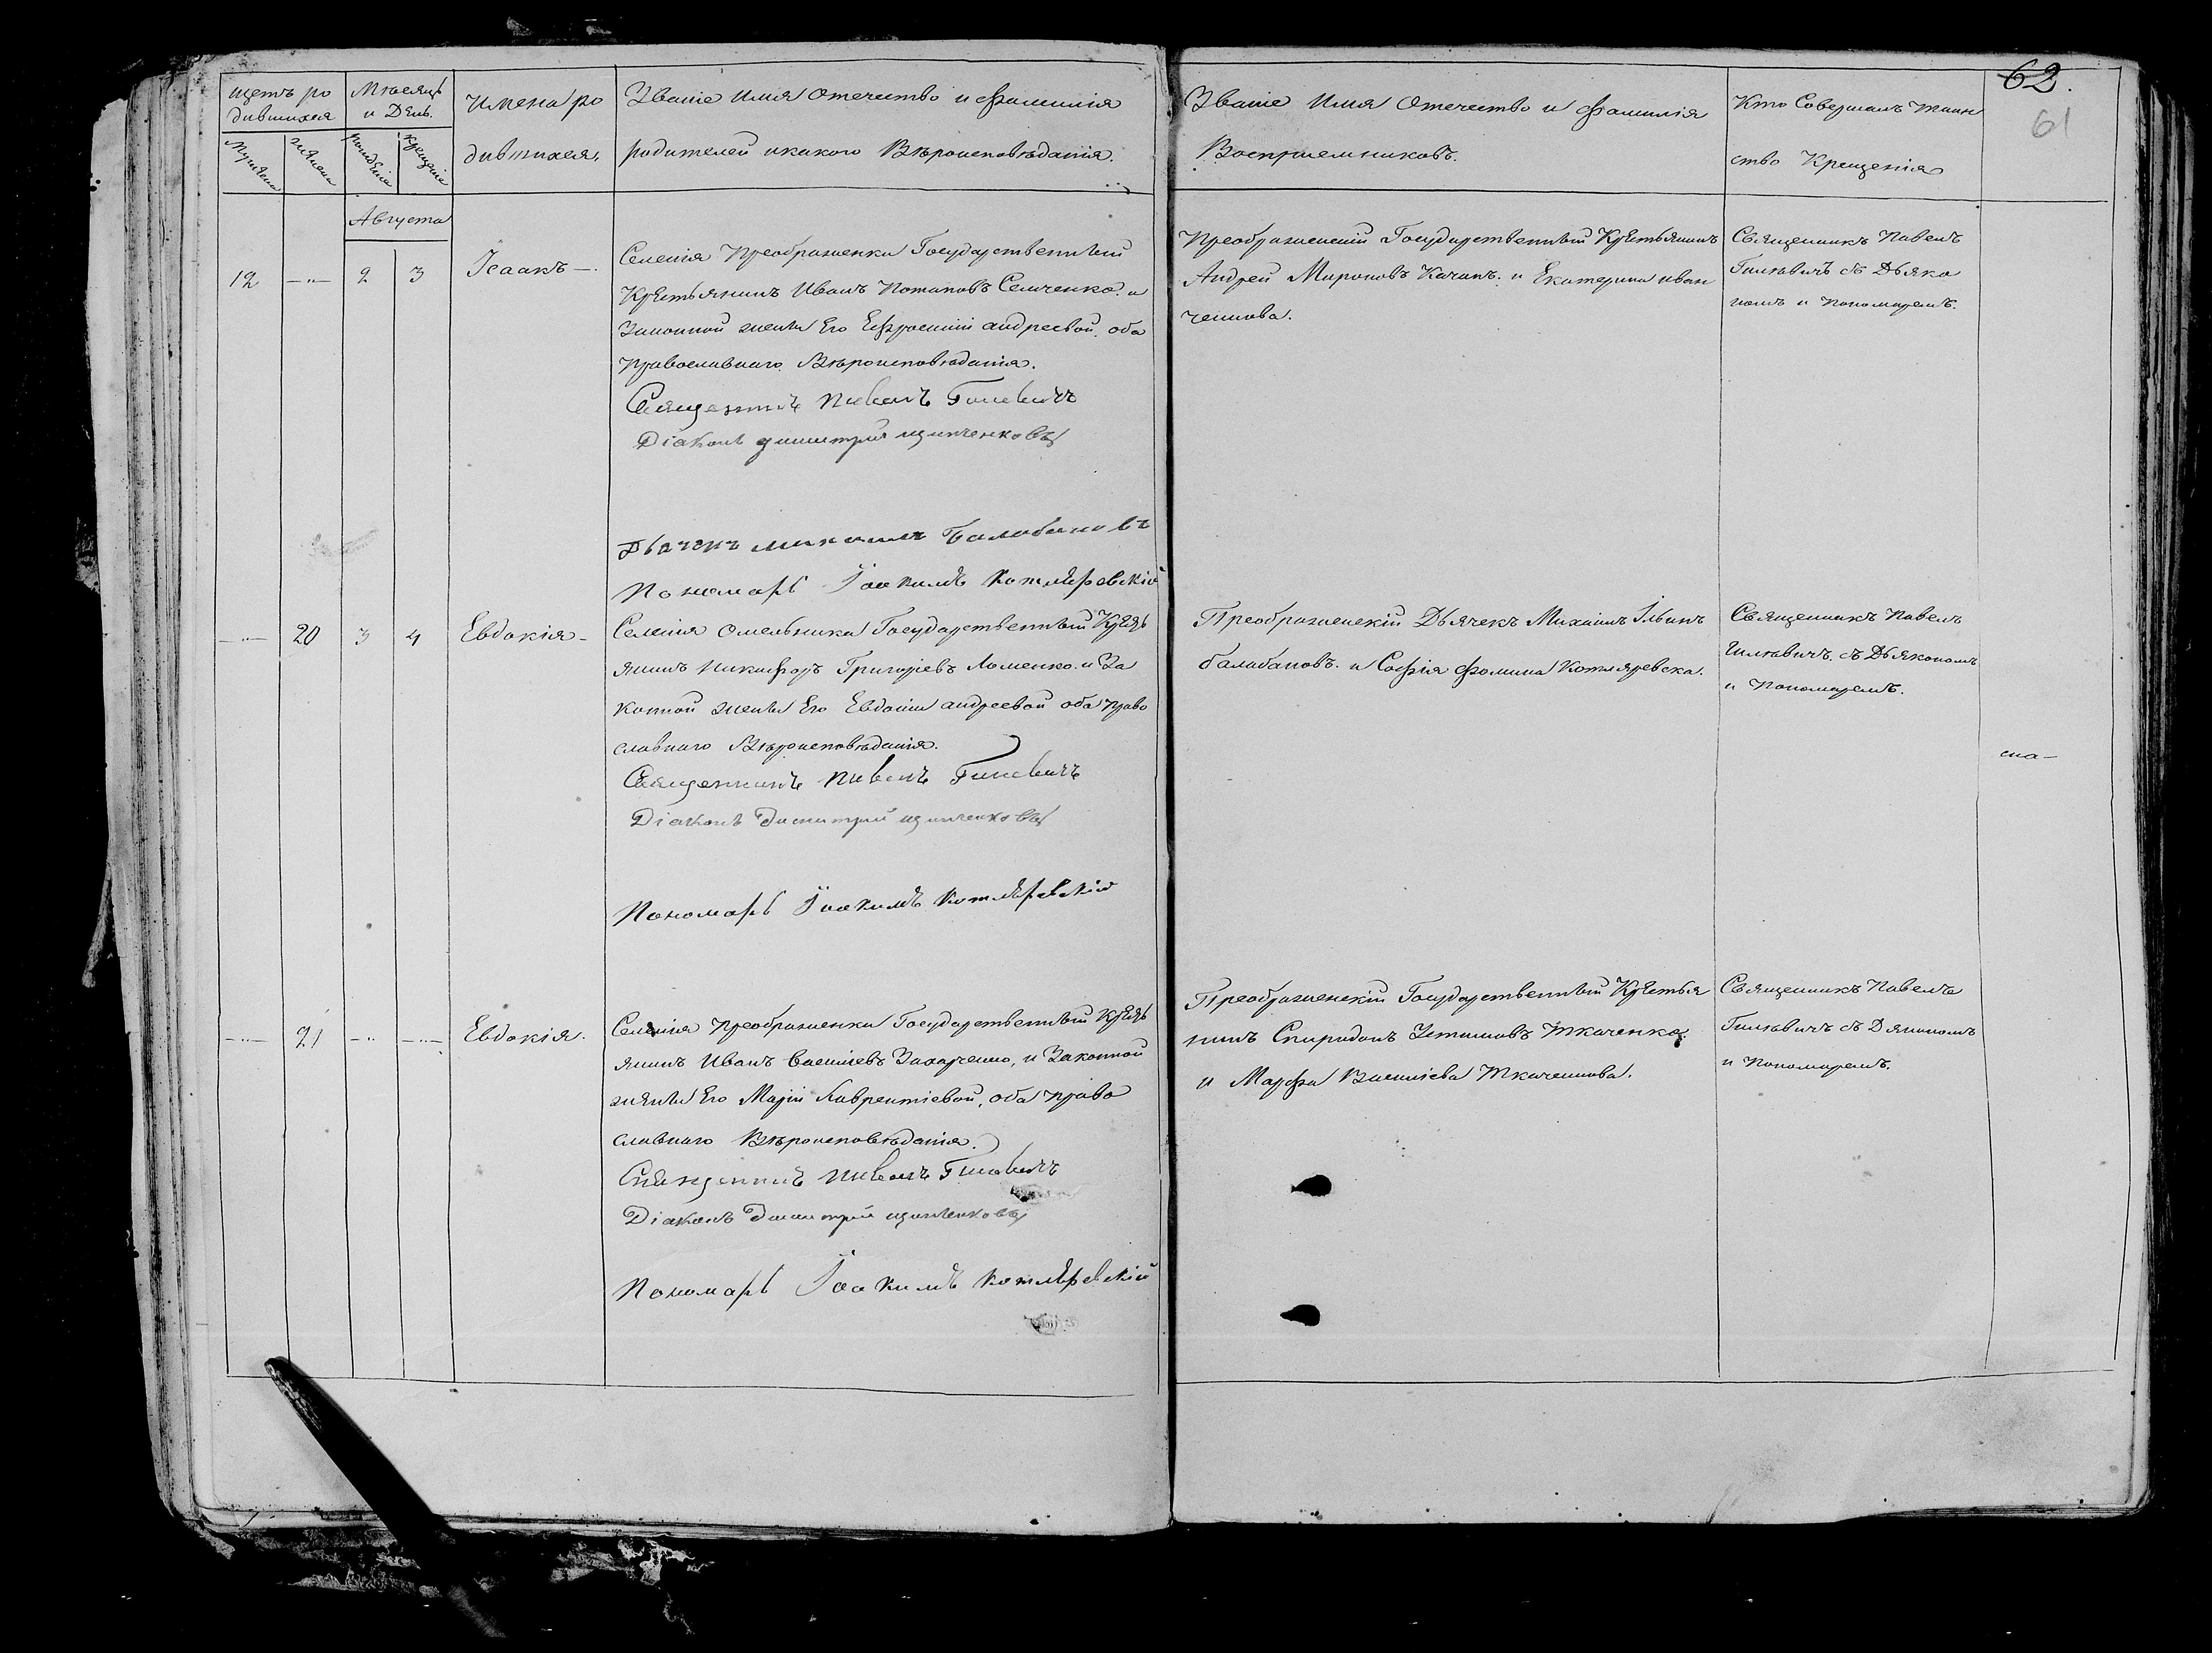 62.
61
щетъ ро
дившихся
Мѣсяцъ
и День.
Имена ро
дившихся,
Званіе Имя Отечество и Фамилія
родителей икакого Вѣроисповѣданія.
Званіе Имя Отечество и Фамилія
Воспріемниковъ.
Кто Совершалъ Таин
ство Крещенія
мужеска
женска
рожденія
крещенія
Августа
12
2
3
Ісаакъ —.
Селенія Преображенки Государственный
Крѣстьянинъ Иванъ Потаповъ Семченко. и
Законной жены Его Ефросиніи андреевой. оба
Православнаго Вѣроисповѣданія.
Священникъ Павелъ Гилевичъ
Діаконъ димитрій
Дьячекъ михаилъ Балабановъ
Пономарь Іоакимъ Котлѣревскій
Преображенскій Государственный Крѣстьянинъ
Андрей Мироновъ Качанъ. и Екатерина иван
ченкова.
Священникъ Павелъ
Гилевичъ съ Дьяко
номъ и пономаремъ.
20
3
4
Евдокія –
Селенія Омельника Государственный Крѣсть
янинъ Никифоръ Григорьевъ Ломенко. и За
конной жены Его Евдокіи андреевой оба право
славнаго Вѣроисповѣданія.
Священникъ Павелъ Гилевичъ
Діаконъ Димитрій
Пономарь Іоакимъ Котлѣревскій
Преображенскій Дьячекъ Михаилъ Ільинъ
балабановъ. и Софія Фомина Котляревска.
Священникъ Павелъ
Гилевичъ. съ Дьякономъ
и Пономаремъ.
ска –
21
Евдокія.
Селенія преображенки Государственный Крѣсть
янинъ Иванъ Василіевъ Захарченко, и Законной
жены Его Маріи Лаврентіевой, оба право
славнаго Вѣроисповѣданія.
Священникъ Павелъ Гилевичъ
Діаконъ Димитрій
Пономарь Іоакимъ Котлѣревскій
Преображенскій Государственный Крѣстья
нинъ Спиридонъ Устимовъ Ткаченко.
и Марфа Василіева Ткаченкова.
Священникъ Павелъ
Гилевичъ съ Дякономъ
и Пономаремъ.